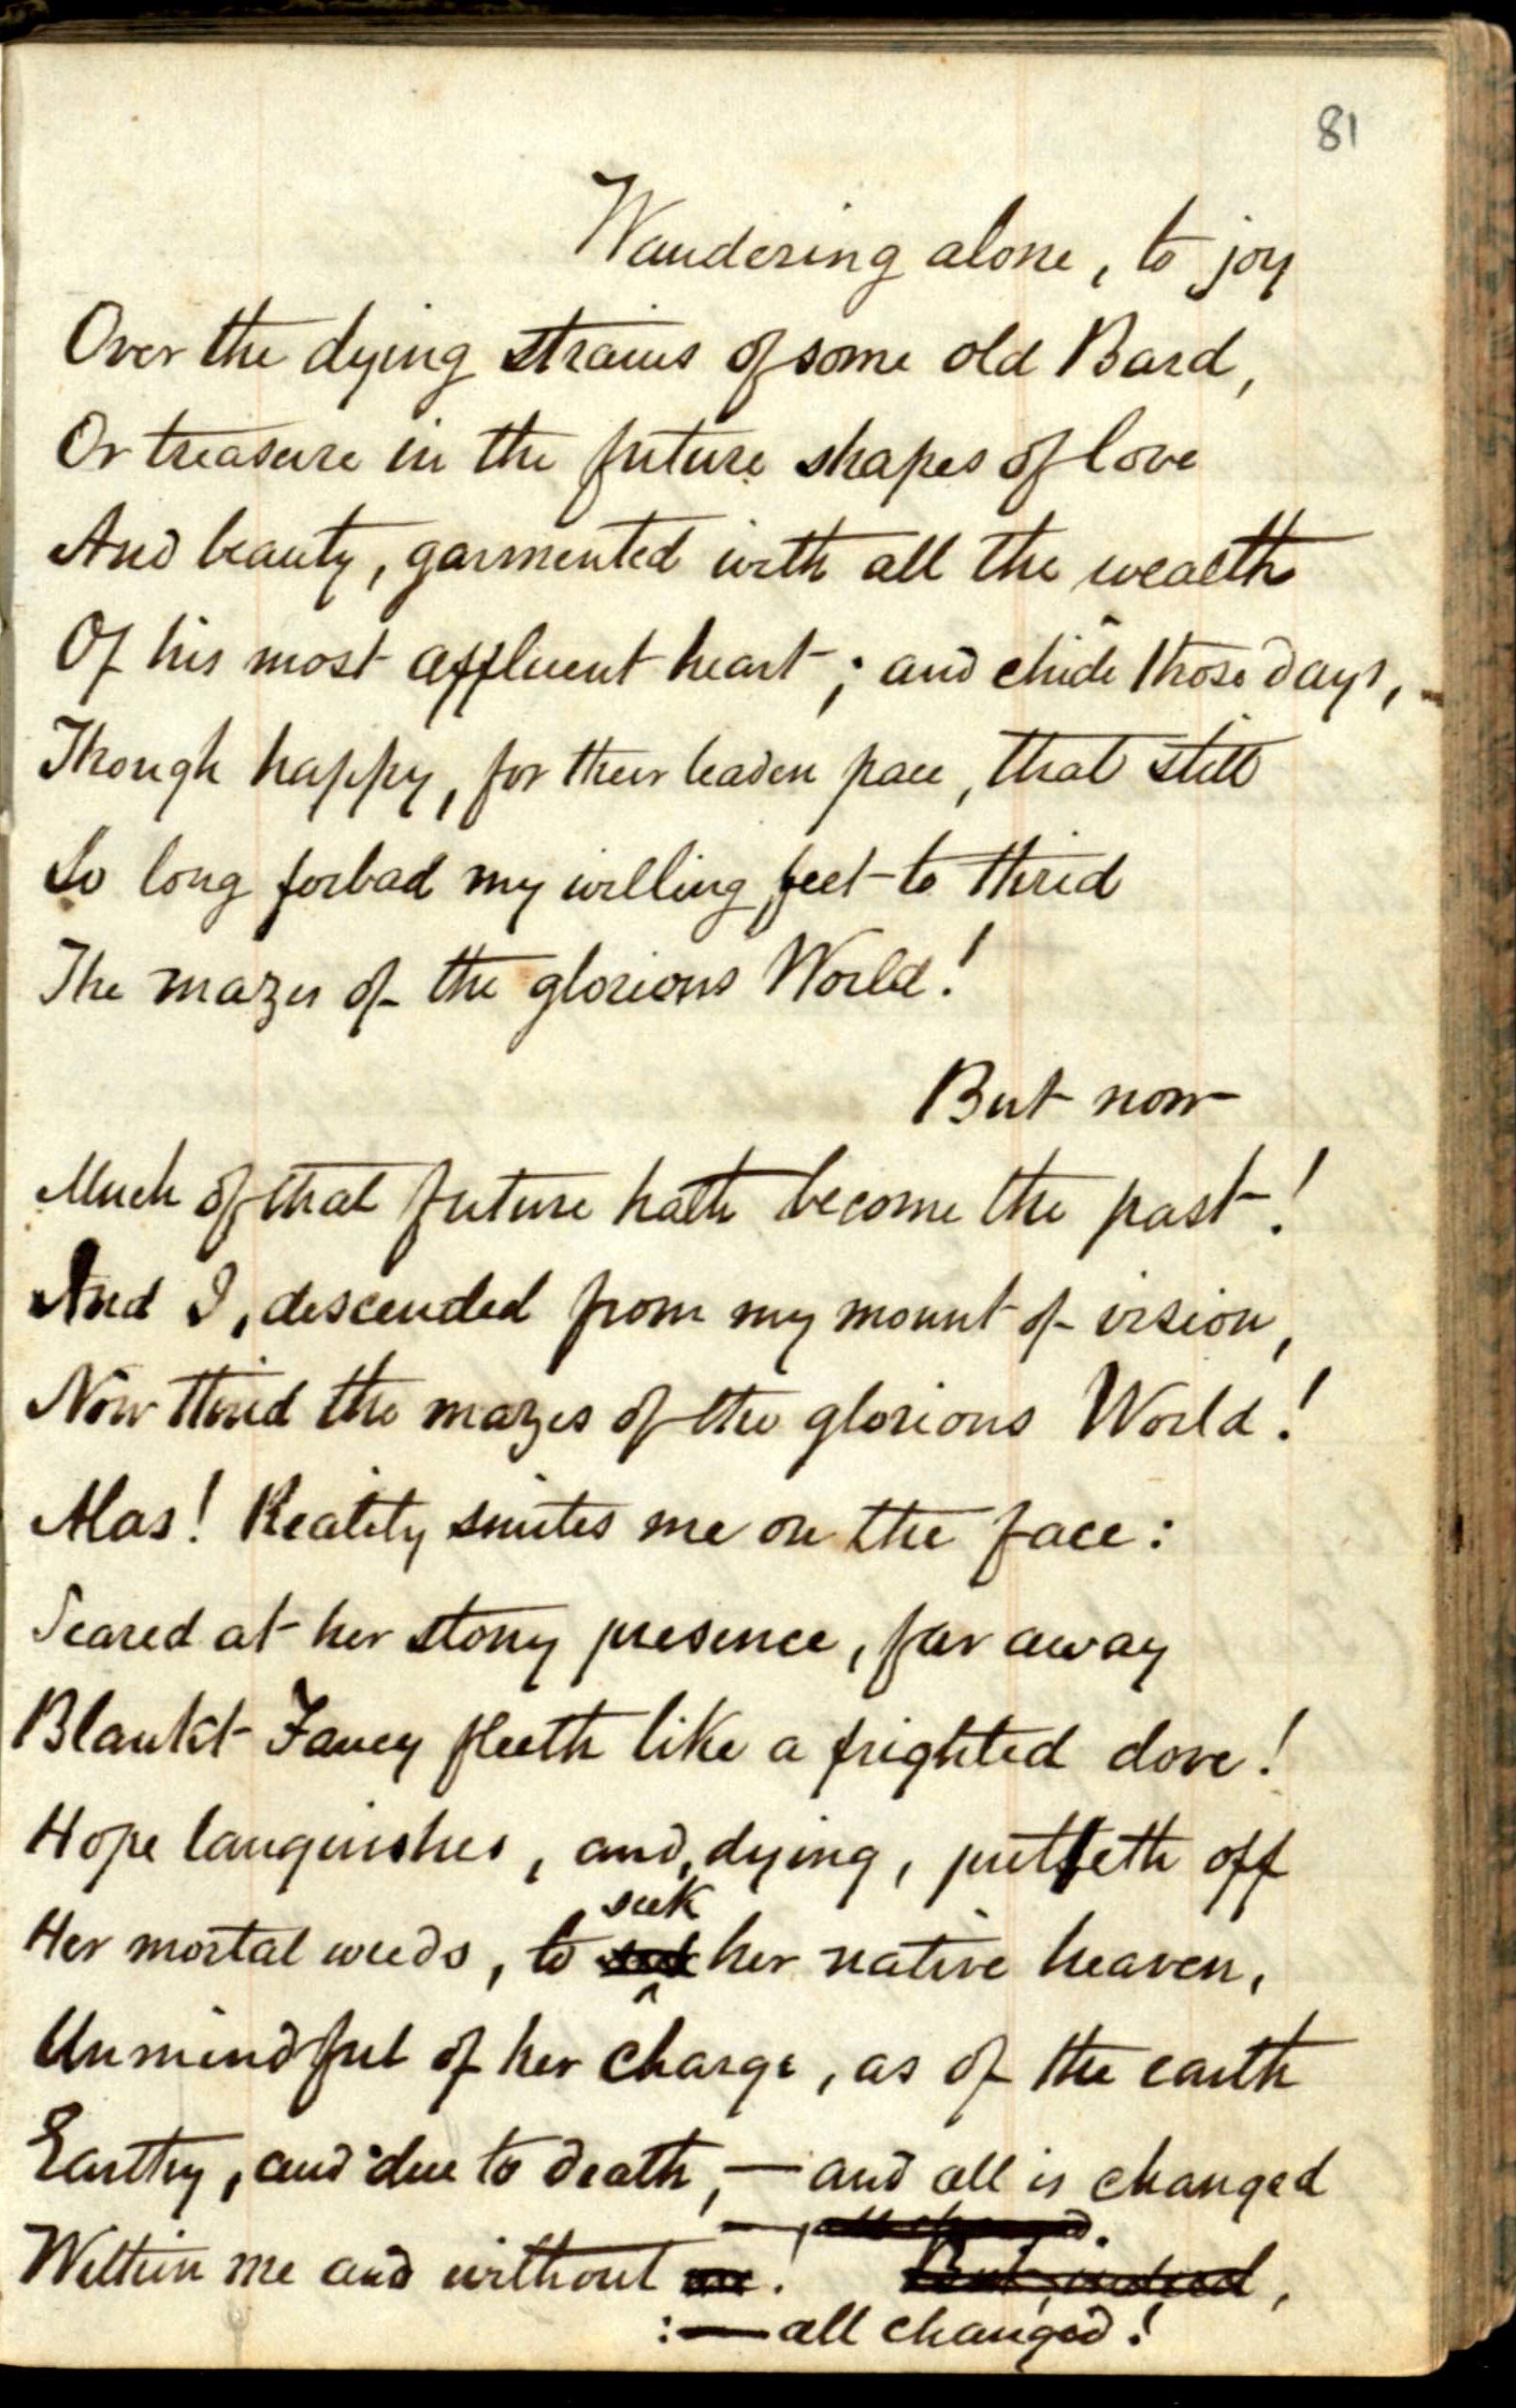 81
Wandering alone, to joy
Over the dying strains of some old Bard,
Or treasure in the future shapes of love
And beauty, garmented with all the wealth
Of his most affluent heart; and chide those days,
Though happy, for their leaden pace, that still
So long forbad my willing feet to thrid
The mazes of the glorious World!
But now
Much of that future hath become the past!
And I, descended from my mount of vision,
Now thrid the mazes of the glorious World!
Alas! Reality smites me on the face:
Scared at her stony presence, far away
Blankt Fancy fleeth like a frighted dove!
Hope languishes, and, dying, putteth off
seek
Her mortal weeds, to her native heaven,
Unmindful of her charge, as of the earth
Earthy, and due to death, — and all is changed
Within me and without me! But, indeed,
:— all changed!